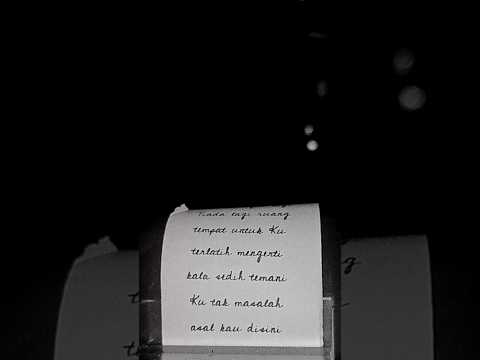 Tiada lagi ruang
tempat untuk Ku
terlatih mengerti
kala sedih temani
Ku tak masalah
asal kau disini